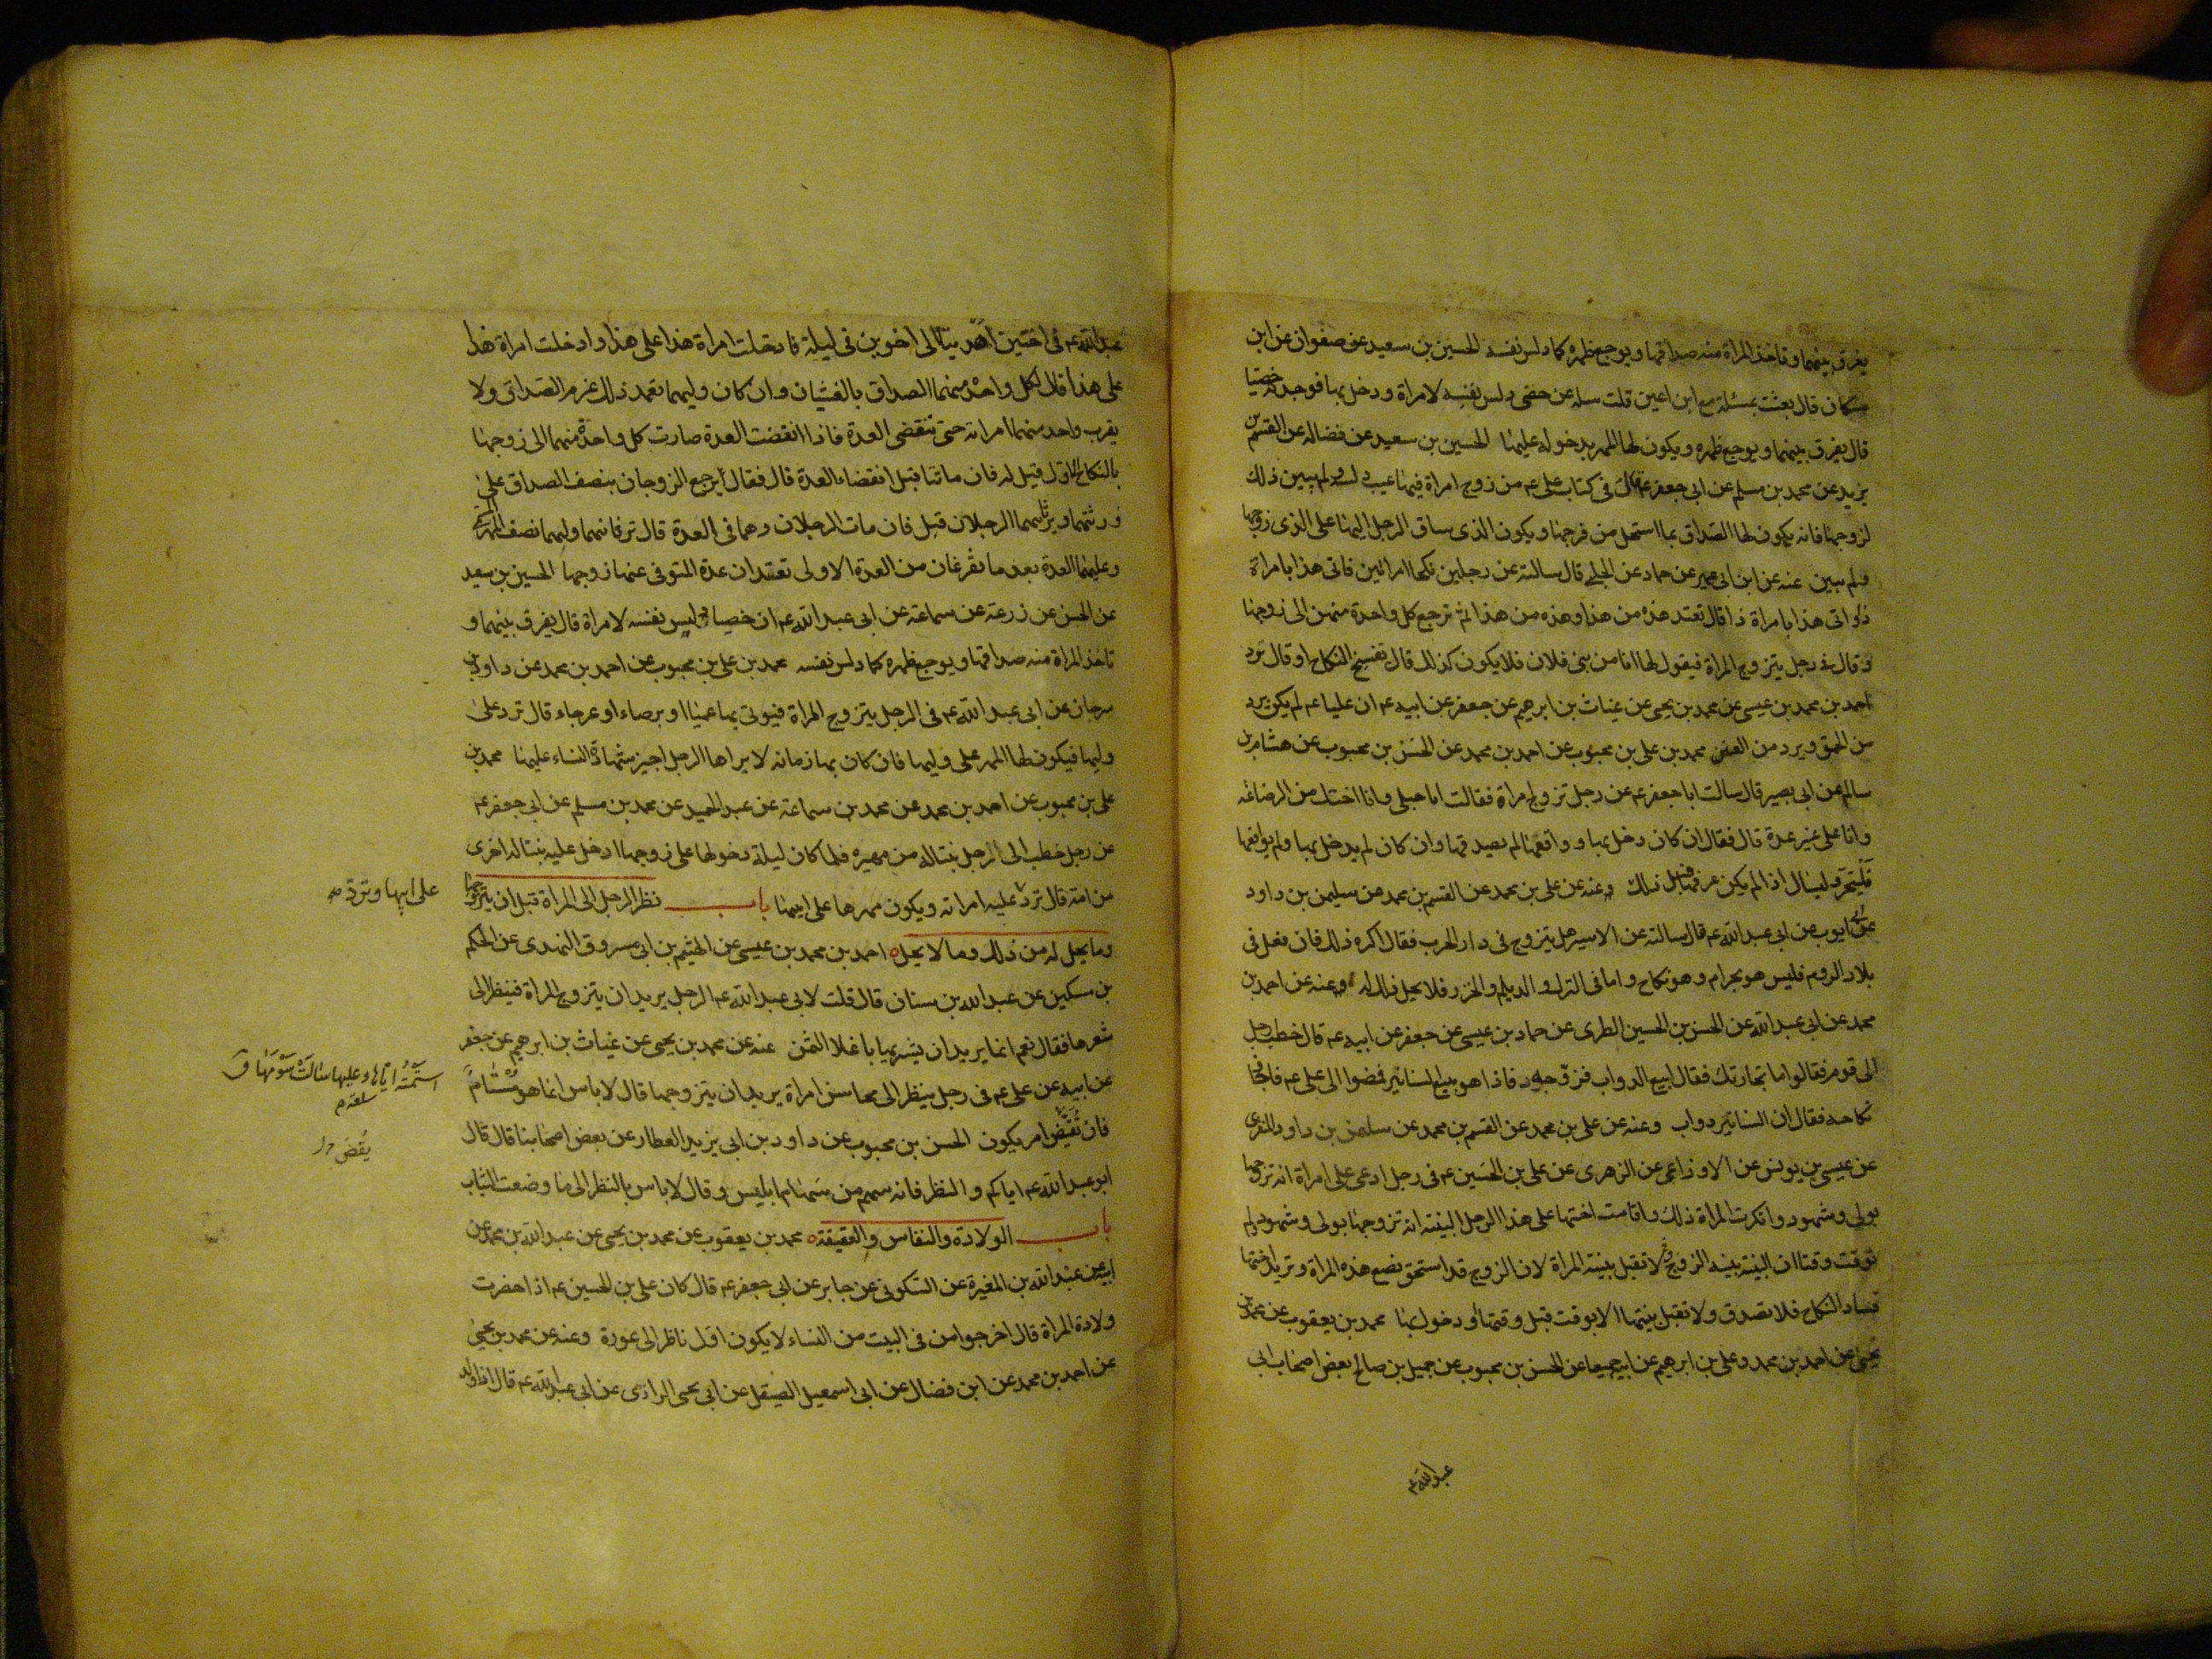 يفرق بينهما وتاخذ المراة منه صداقها ويوجع ظهره كما دلس نفسه الحسين بن سعيد عن صفوان عن ابن
مسكان قال بعثت بمسئلة مع ابن اعين قلت سله عن خصى دلس نفسه لامراة ودخل بها فوجدته خصيا
قال يفرق بينهما ويوجع ظهره ويكون لها المهر بدخوله عليها الحسين بن سعيد عن فضاله عن القسم بن
يزيد عن محمد بن مسلم عن ابى جعفر عم قال فى كتاب على عم من زوج امراة فيها عيب دلسه ولم يبين ذلك
لزوجها فانه يكون لها الصداق بما استحل من فرجها ويكون الذى ساق الرجل اليها على الذى زوجها
ولم يبين عنه عن ابن ابى عمير عن حماد عن الحلبى قال سالته عن رجلين نكحا امراتين فاتى هذا بامراة
ذا واتى هذا بامراة ذا قال تعتد هذه من هذا وهذه من هذا ثم ترجع كل واحدة منهن الى زوجها
وقال فى رجل يتزوج المراة فيقول لها انا من بنى فلان فلا يكون كذلك قال تفسخ النكاح او قال ترد
احمد بن محمد بن عيسى عن محمد بن يحيى عن غياث بن ابرهيم عن جعفر عن ابيه عم ان عليا عم لم يكن يرد
من الحمق ويرد من العفل محمد بن على بن محبوب عن احمد بن محمد عن الحسن بن محبوب عن هشام بن
سالم عن ابى بصير قال سالت ابا جعفر عم عن رجل تزوج امراة فقالت انا حبلى وانا اختك من الرضاعة
وانا على غير عدة قال فقال ان كان دخل بها وواقعها لم يصدقها وان كان لم يدخل بها ولم يواقعها
فليتحر وليسال اذا لم يكن عرفها قبل ذلك وعنه عن على بن محمد عن القسم بن محمد عن سليمن بن داود
عن ابى ايوب عن ابى عبد الله عم قال سالته عن الاسير هل يتزوج فى دار الحرب فقال اكره ذلك فان فعل فى
بلاد الروم فليس هو بحرام وهو نكاح واما فى الترك والديلم والخزر فلا يحل ذلك له وعنه عن احمد بن
محمد عن ابى عبد الله عن الحسن بن الحسين الطبرى عن حماد بن عيسى عن جعفر عن ابيه عم قال خطب رجل
الى قوم فقالوا ما تجارتك فقال ابيع الدواب فزوجوه فاذا هو يبيع السنانير فمضوا الى على عم فاجاز
نكاحه فقال ان السنانير دواب وعنه عن على بن محمد عن القسم بن محمد عن سليمن بن داود المنقرى
عن عيسى بن يونس عن الاوزاعى عن الزهرى عن على بن الحسين عم فى رجل ادعى على امراة انه تزوجها
بولى وشهود وانكرت المراة ذلك واقامت اختها على هذا الرجل البينة انه تزوجها بولى وشهود ولم
توقت وقتا ان البينة بينة الزوج ولا تقبل بينة المراة لان الزوج قد استحق بضع هذه المراة وتريد اختها
فساد النكاح فلا تصدق ولا تقبل بينتها الا بوقت قبل وقتها او دخول بها محمد بن يعقوب عن محمد بن
يحيى عن احمد بن محمد وعلى بن ابرهيم عن ابيه جميعا عن الحسن بن محبوب عن جميل بن صالح بعض اصحاب ابى
عبد الله عم
عبد الله عم فى اختين اهديتا الى اخوين فى ليلة فادخلت امراة هذا على هذا وادخلت امراة هذا
على هذا قال لكل واحدة منهما الصداق بالغشيان وان كان وليهما تعمد ذلك غرم الصداق ولا
يقرب واحد منهما امراته حتى تنقضى العدة فاذا انقضت العدة صارت كل واحدة منهما الى زوجها
بالنكاح الاول قيل له فان ماتتا قبل انقضاء العدة قال فقال يرجع الزوجان بنصف الصداق على
ورثتهما ويرثانهما الرجلان قيل فان مات الرجلان وهما فى العدة قال ترثانهما ولهما نصف المهر
وعليهما العدة بعد ما تفرغان من العدة الاولى تعتدان عدة المتوفى عنها زوجها الحسين بن سعيد
عن الحسن عن زرعة عن سماعة عن ابى عبد الله عم ان خصيا دلس نفسه لامراة قال يفرق بينهما و
تاخذ المراة منه صداقها ويوجع ظهره كما دلس نفسه محمد بن على بن محبوب عن احمد بن محمد عن داود بن
سرحان عن ابى عبد الله عم فى الرجل يتزوج المراة فيوتى بها عمياا او برصاء او عرجاء قال ترد على
وليها فيكون لها المهر على وليها فان كان بها زمانه لا يراها الرجل اجيز شهادة النساء عليها محمد بن
على بن محبوب عن احمد بن محمد عن محمد بن سماعة عن عبد الحميد عن محمد بن مسلم عن ابى جعفر عم
عن رجل خطب الى الرجل بنتا له من مهيرة فلما كان ليلة دخولها على زوجها ادخل عليه بنتا له اخرى
من امة قال ترد عليه امراته ويكون مهرها على ابيها باب نظر الرجل الى المراة قبل ان يتزوجها
على ابيها وترد
وما يحل له من ذلك وما لا يحل احمد بن محمد بن عيسى عن الهيثم بن ابى مسروق النهدى عن الحكم
بن مسكين عن عبد الله بن سنان قال قلت لابى عبد الله عم الرجل يريد ان يتزوج المراة فينظر الى
شعرها فقال نعم انما يريد ان يشتريها باغلا الثمن عنه عن محمد بن يحيى عن غياث بن ابرهيم عن جعفر
عن ابيه عن على عم فى رجل ينظر الى محاسن امراة يريد ان يتزوجها قال لا باس انما هو مستام
استمته اياها وعليها سالته سومها ق
فان تقيض امر يكون الحسن بن محبوب عن داود بن ابى يزيد العطار عن بعض اصحابنا قال قال
يقض
ابو عبد الله عم اياكم والنظر فانه سهم من سهام ابليس وقال لا باس بالنظر الى ما وضعت الثياب
باب الولادة والنفاس والعقيقة محمد بن يعقوب عن محمد بن يحيى عن عبد الله بن محمد عن
ابيه عن عبد الله بن المغيرة عن السكونى عن جابر عن ابى جعفر عم قال كان على بن الحسين عم اذا حضرت
ولادة المراة قال اخرجوا من فى البيت من النساء لا يكون اول ناظر الى عورة وعنه عن محمد بن يحيى
عن احمد بن محمد عن ابن فضال عن ابى اسمعيل الصيقل عن ابى يحيى الرازى عن ابى عبد الله عم قال اذا ولد